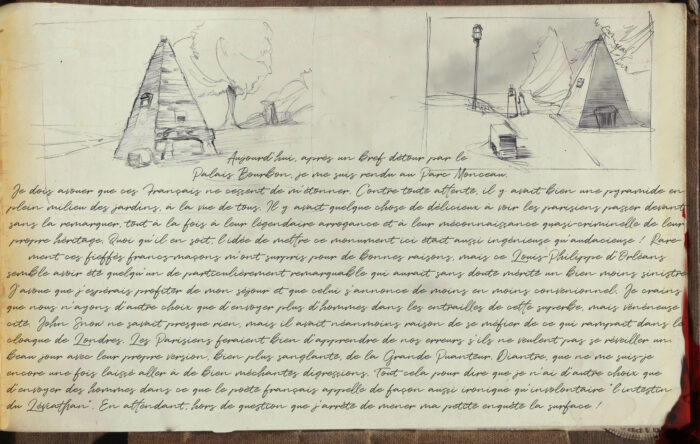 Aujourd'hui, après un bref détour par le
Palais Bourbon, je me suis rendu au Parc Monceau.
Je dois avouer que ces Français ne cessent de m'étonner. Contre toute attente, il y avait bien une pyramide en
plein milieu des jardins, à la vue de tous. Il y avait quelque chose de délicieux à voir les parisiens passer devant
sans la remarquer, tout à la fois à leur légendaire arrogance et à leur méconnaissance quasi-criminelle de leur
propre héritage. Quoi qu'il en soit, l'idée de mettre ce monument ici était aussi ingénieuse qu'audacieuse ! Rare-
ment ces fieffés francs-maçons m'ont surpris pour de bonnes raisons, mais ce Louis-Philippe d'Orléans
semble avoir été quelqu'un de particulièrement remarquable qui aurait sans doute mérité un bien moins sinistre
J'avoue que j'espérais profiter de mon séjour et que celui s'annonce de moins en moins conventionnel. Je crains
que nous n'ayons d'autre choix que d'envoyer plus d'hommes dans les entrailles de cette superbe, mais vénéneuse
cité. John Snow ne savait presque rien, mais il avait néanmoins raison de se méfier de ce qui rampait dans le
cloaque de Londres. Les Parisiens feraient bien d'apprendre de nos erreurs s'ils ne veulent pas se réveiller un
beau jour avec leur propre version, bien plus sanglante, de la Grande Puanteur. Diantre, que ne me suis-je
encore une fois laissé aller à de bien méchantes digressions. Tout cela pour dire que je n'ai d'autre choix que
d'envoyer des hommes dans ce que le poète français appelle de façon aussi ironique qu'involontaire "l'intestin
du Léviathan". En attendant, hors de question que j'arrête de mener ma petite enquête la surface !